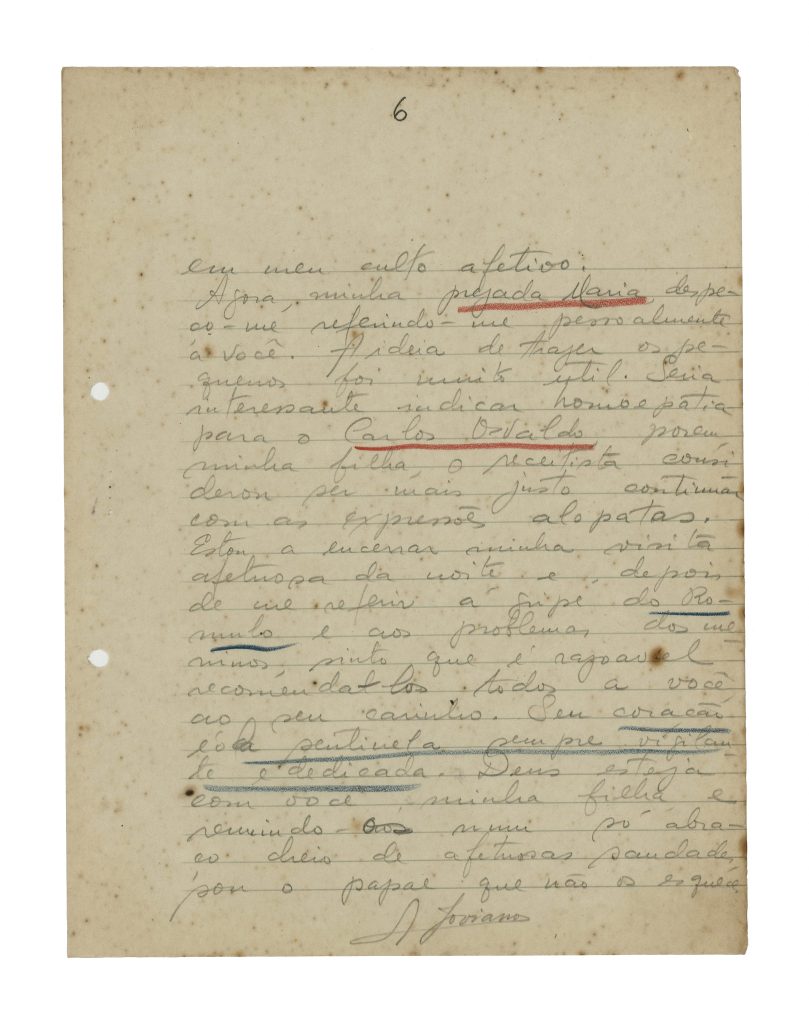 6
em meu culto afetivo.
Agora, minha prezada Maria despe-
ço-me referindo-me pessoalmente
á você. A ideia de trazer os pe-
quenos foi muito util. Seria
interessante indicar homoepatia
para o Carlos Osvaldo porem
minha filha o receitista consi
derou ser mais justo continuar
com as expressões alopatas.
Estou a encerrar minha visita
afetuosa da noite e, depois
de me referir á gripe do Ro-
mulo e aos problemas dos me
ninos, sinto que é razoavel
recomendal-los todos a você
ao seu carinho. Seu coração
é a sentinela sempre vigilan-
te e dedicada. Deus esteja
com você, minha filha e
reunindo-os num só abra-
ço cheio de afetuosas saudades
sou o papae que não os esquéce
A Joviano